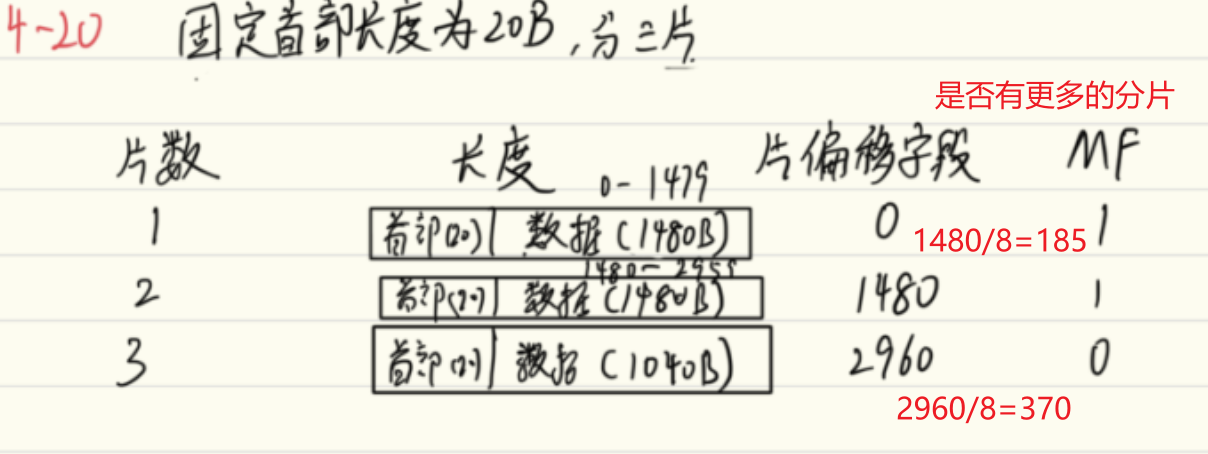 4-20 固定首部长度为20B,分三片
是否有更多的分片
片数 长度 片偏移字段 MF
0-1479
1 首部(20) 数据(1480B) 0 1480/8=185 1
1480-2959
2 首部(20) 数据(1480B) 1480 1
3 首部(20) 数据(1040B) 2960 0
2960/8=370